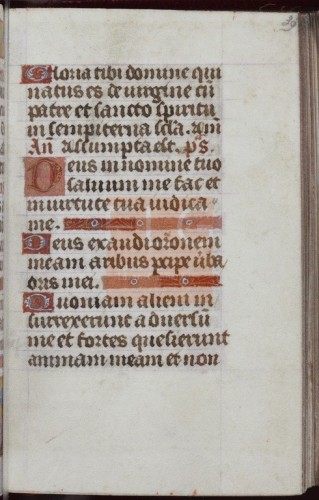 Gloria tibi domine qui
natus es de virgine cū
patre et sancto spiritu
in sempiterna scła. Am̄
An̄ Assumpta est. ps̄.
Deus in nomine tuo
saluum me fac et
in uirtute tua iudica
me.
Deus exaudi or̄onem
meam auribus pcipe ūba
oris mei.
Quoniam alieni in
surrexerunt aduersū
me et fortes quesierunt
animam meam et non